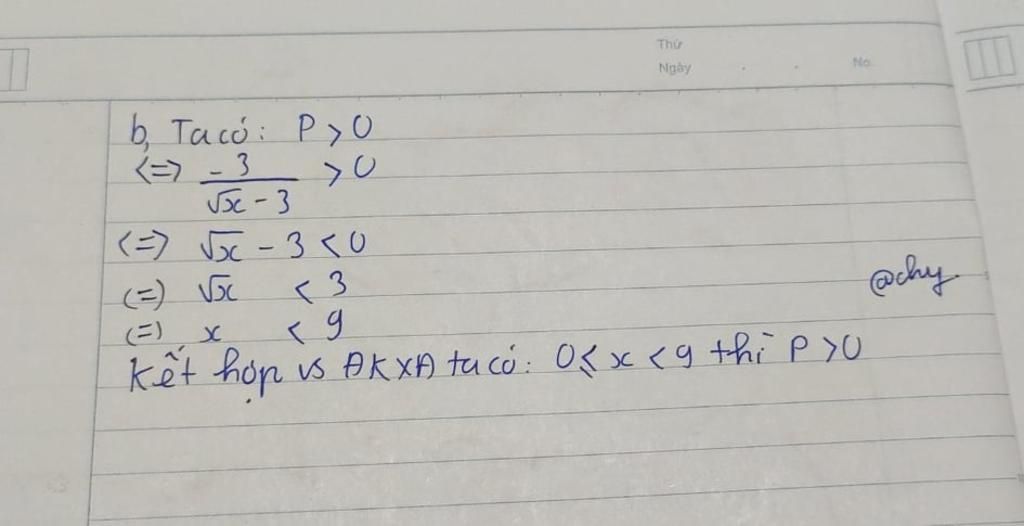 Thứ
Ngày . . No.
b, Ta có: P > 0
<=> -3/(√x - 3) > 0
<=> √x - 3 < 0
(=) √x < 3
@chy
(=) x < 9
Kết hợp vs ĐKXĐ ta có: 0 ≤ x < 9 thì P > 0